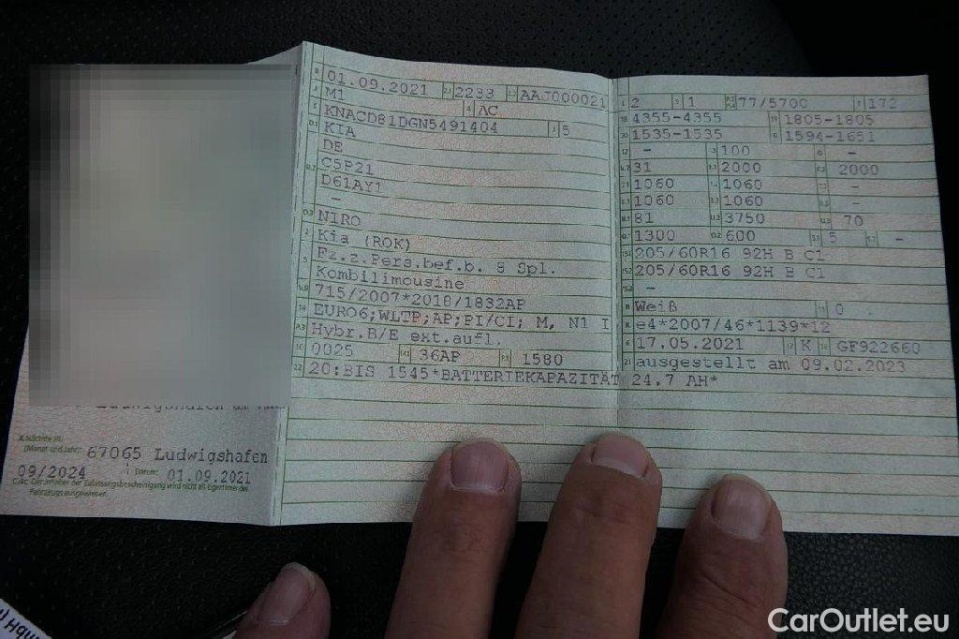 01.09.2021 2233 AAJ000021
M1 AC
KNACD81DGN5491404 5
KIA
DE
C5P21
D61AY1
-
NIRO
Kia (ROK)
Fz.z.Pers.bef.b. 8 Spl.
Kombilimousine
715/2007*2018/1832AP
EURO6;WLTP;AP;PI/CI; M, N1 I
Hybr.B/E ext.aufl.
0025 36AP 1580
22 20:BIS 1545*BATTERIEKAPAZITÄT 24.7 AH*
2 1 77/5700 172
4355-4355 1805-1805
1535-1535 1594-1651
- 100 -
31 2000 2000
1060 1060 -
1060 1060 -
81 3750 70
1300 600 5 -
205/60R16 92H B C1
205/60R16 92H B C1
-
Weiß 0
e4*2007/46*1139*12
17.05.2021 K GF922660
ausgestellt am 09.02.2023
67065 Ludwigshafen
09/2024 Datum: 01.09.2021
CarOutlet.eu